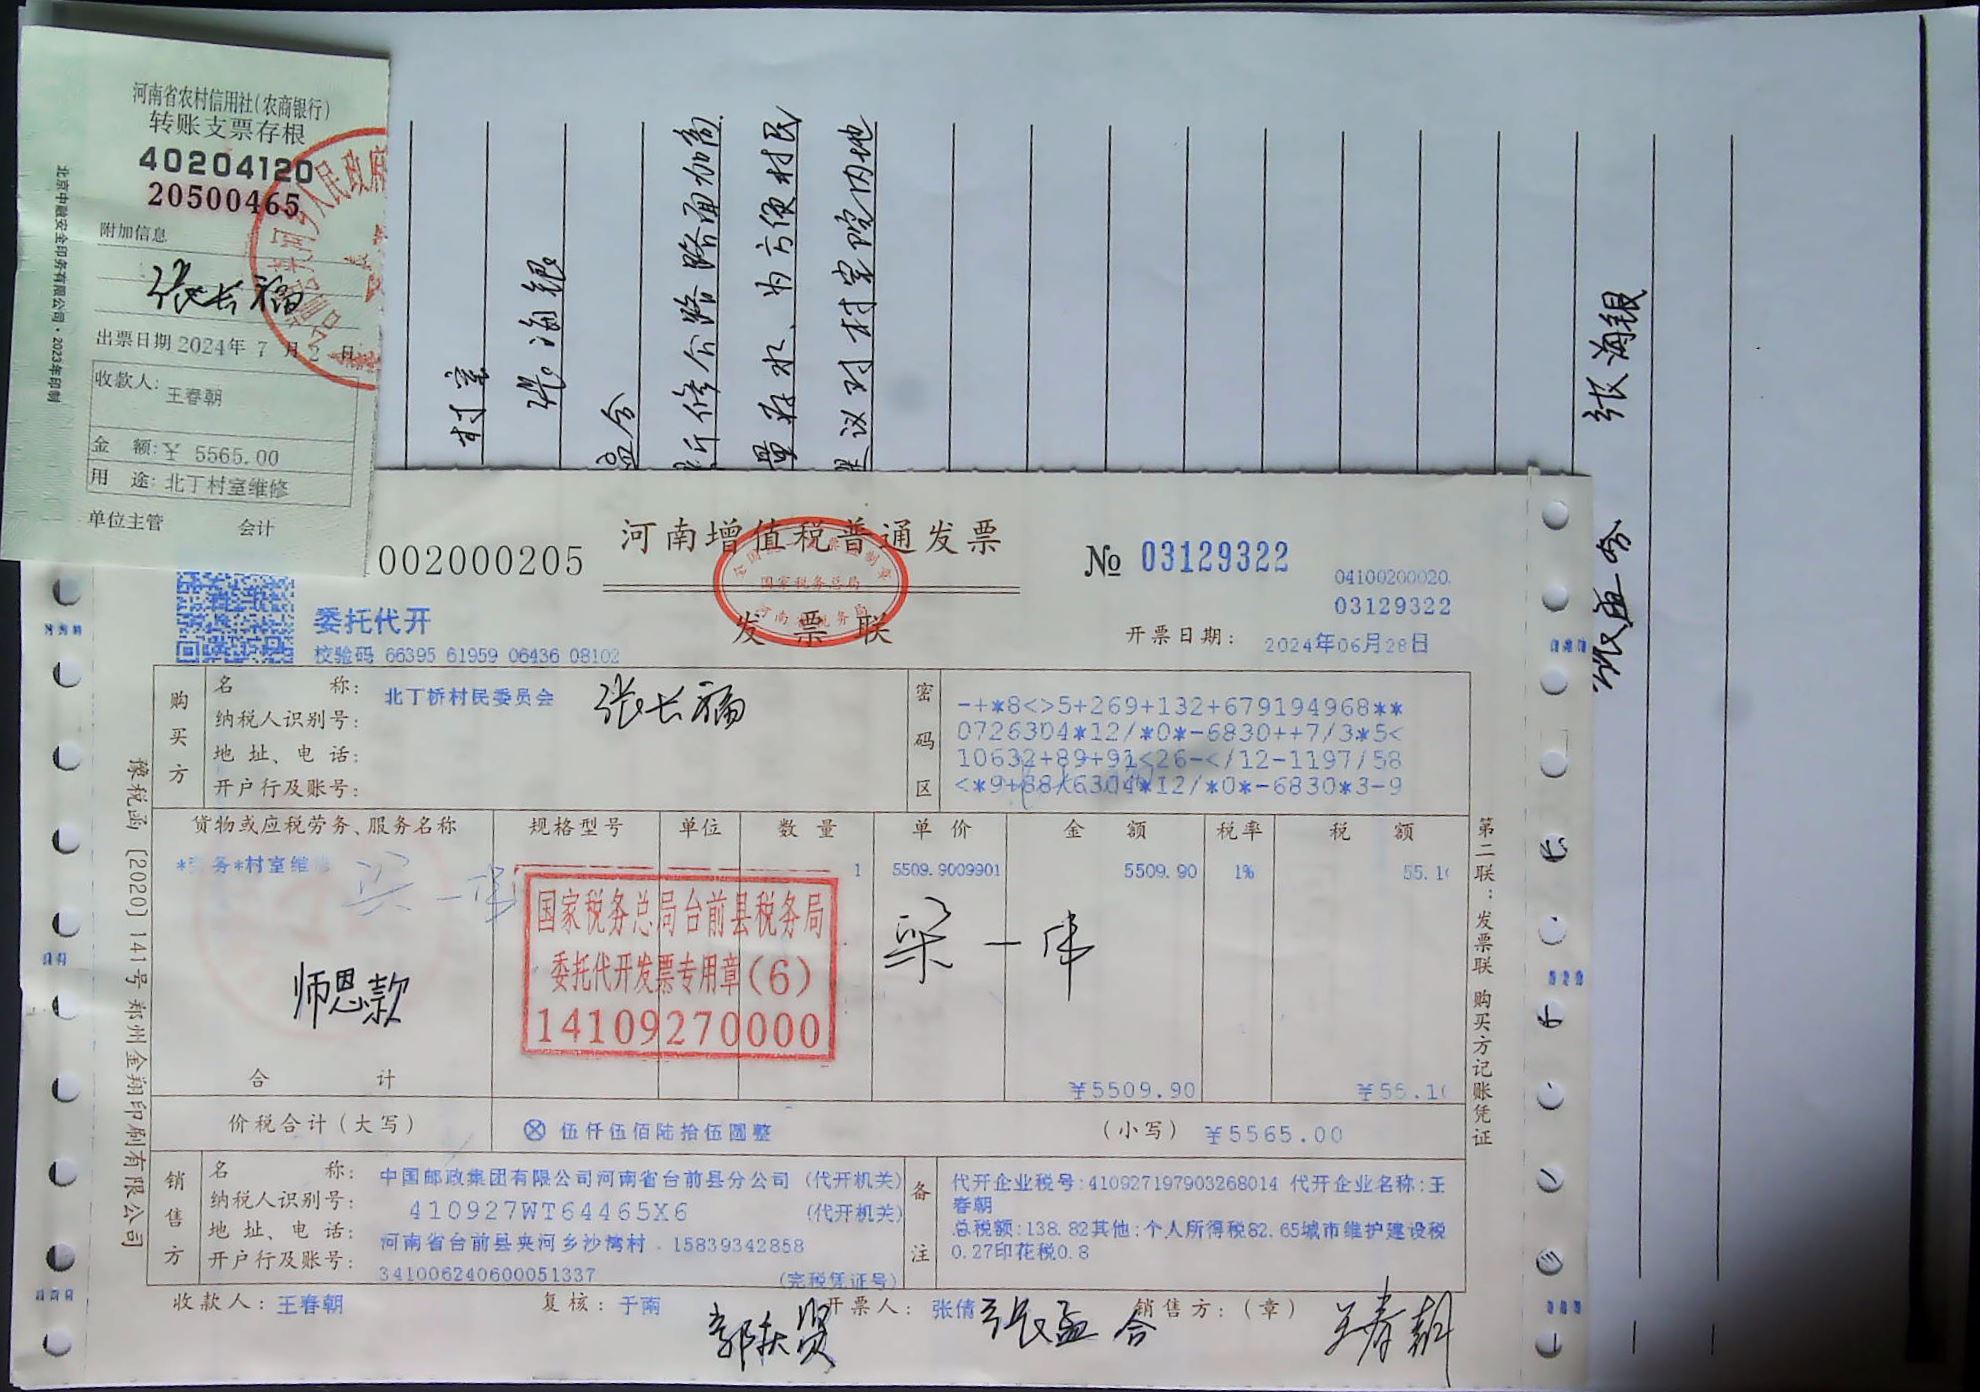 河南省农村信用社(农商银行)
转账支票存根
40204120
20500465
附加信息
张长福
出票日期 2024年 7 月 2 日
收款人: 王春朝
金 额: ¥ 5565.00
用 途: 北丁村室维修
单位主管 会计
北京中融安全印务有限公司·2023年印制
村室
张海银
孟合
新修公路路面加高
量存水、为方便村民
议对村室院内地
张海银
张孟合
002000205
河南增值税普通发票
发票联
国家税务总局
№ 03129322
04100200020
03129322
委托代开
校验码 66395 61959 06436 08102
开票日期: 2024年06月28日
购买方
名 称: 北丁桥村民委员会
张长福
纳税人识别号:
地 址、电 话:
开户行及账号:
密码区
-+*8<>5+269+132+679194968**
0726304*12/*0*-6830++7/3*5<
10632+89+91<26-</12-1197/58
<*9+88/6304*12/*0*-6830*3-9
货物或应税劳务、服务名称 规格型号 单位 数 量 单 价 金 额 税率 税 额
务*村室维 1 5509.9009901 5509.90 1% 55.1
国家税务总局台前县税务局
委托代开发票专用章(6)
14109270000
梁一伟
师恩款
合 计 ¥5509.90 ¥55.1
价税合计(大写) ⊗ 伍仟伍佰陆拾伍圆整 (小写) ¥5565.00
销售方
名 称: 中国邮政集团有限公司河南省台前县分公司 (代开机关)
纳税人识别号: 410927WT64465X6 (代开机关)
地 址、电 话: 河南省台前县夹河乡沙湾村 . 15839342858
开户行及账号: 341006240600051337 (完税凭证号)
备注
代开企业税号:410927197903268014 代开企业名称:王
春朝
总税额:138.82其他:个人所得税82.65城市维护建设税
0.27印花税0.8
收款人: 王春朝 复核: 于南 开票人: 张倩 销售方:(章)
张孟合
王春朝
豫税函〔2020〕141号郑州金翔印刷有限公司
第二联:发票联 购买方记账凭证